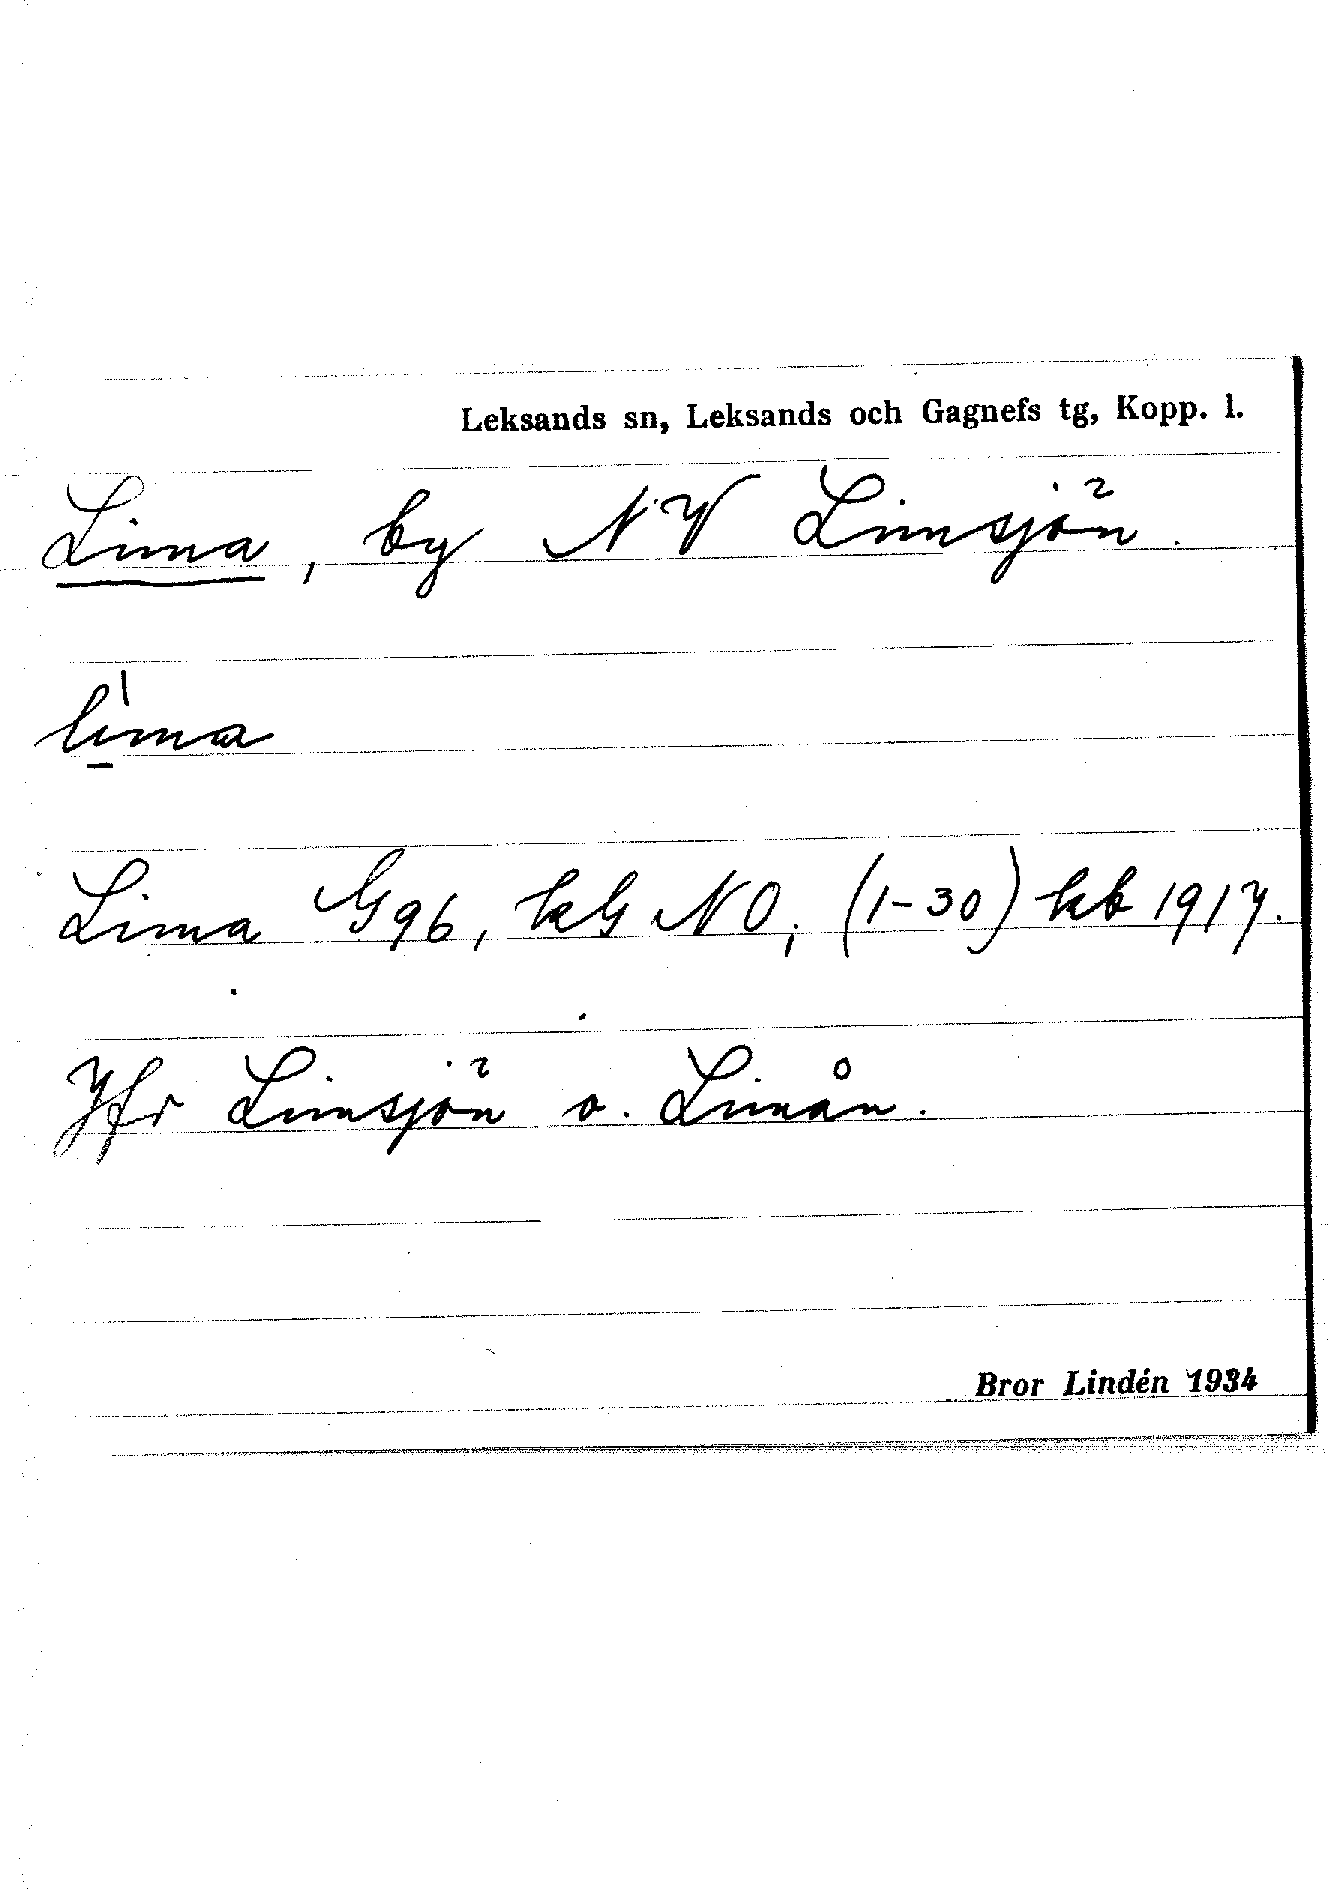 Leksands sn, Leksands och Gagnefs tg, Kopp. l.
Lima, by NV Limsjön.
lìma
Lima G 96, kG NO, (1-30) kb 1917.
Jfr Limsjön o. Limån.
Bror Lindén 1934